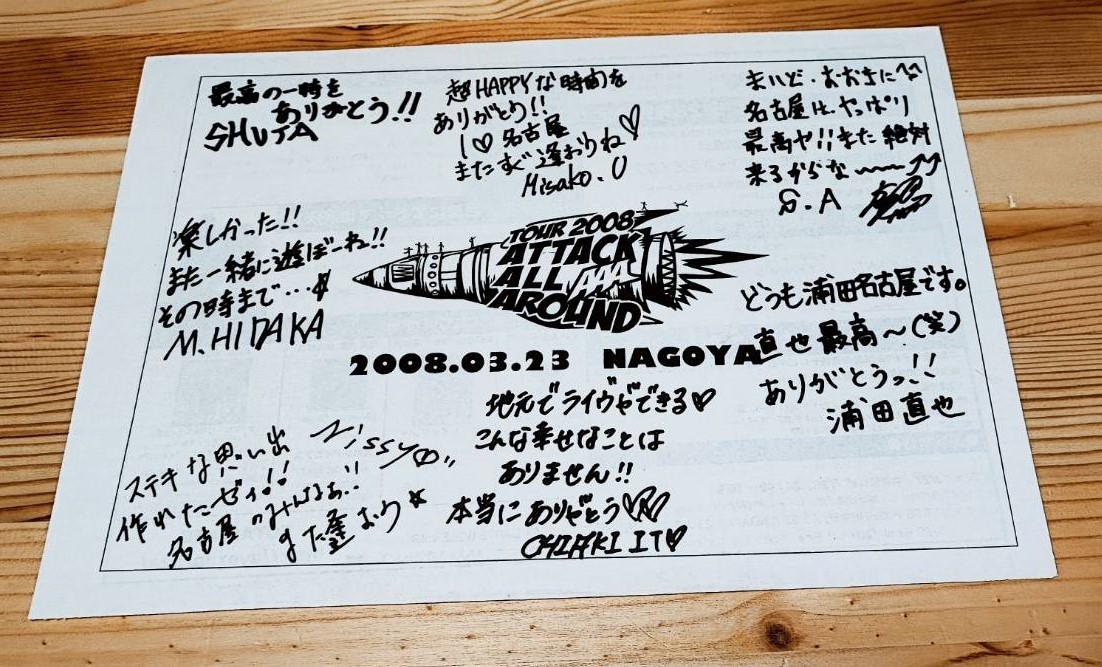 最高の一時を
ありがとう!!
SHUTA
超HAPPYな時間を
ありがとう!!
I♡名古屋
またすぐ逢おうね♡
Misako.U
まいど・おおきに^^
名古屋は、やっぱり
最高や!!また絶対
来るからな〜〜⤴⤴
S.A
楽しかった!!
また一緒に遊ぼーね!!
その時まで…
M.HIDAKA
TOUR 2008
ATTACK
ALL
AROUND
AAA
2008.03.23 NAGOYA
どうも浦田名古屋です。
直也最高〜(笑)
ありがとうっ!!
浦田直也
ステキな思い出
作れたーゼィ!!
名古屋のみんなぁ!!
また逢おう☆
Nissy
地元でライヴができる♡
こんな幸せなことは
ありません!!
本当にありがとう♡♡
CHIAKI ITO